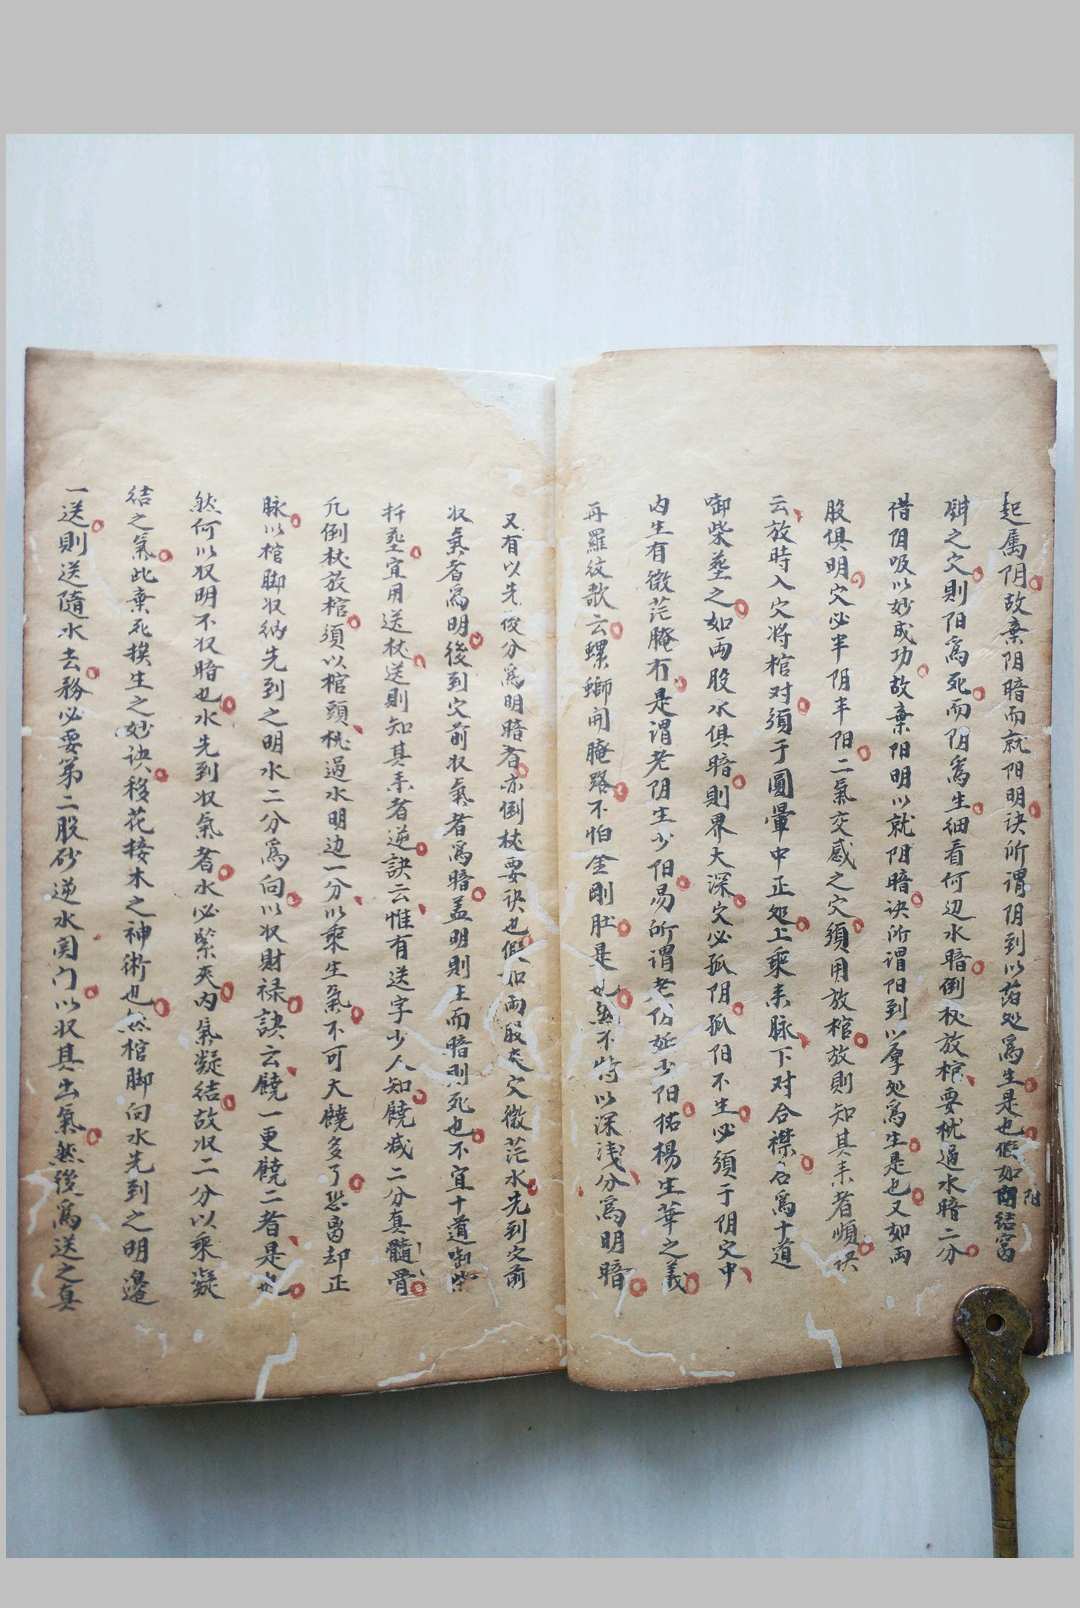 起属阴故棄阴暗而就阳明诀所谓阴到以落处為生是也假如附结窝
鉗之穴則阳為死而阴為生细看何边水暗倒杖放棺要枕過水暗二分
借阴吸以妙成功故棄阳明以就阴暗诀所谓阳到以厚处為生是也又如両
股俱明穴必半阴半阳二氣交感之穴須用放棺放則知其来者順诀
云放時入穴将棺对須于圓暈中正处上乘来脉下对合襟名為十道
啣柴墓之如両股水俱暗則界大深穴必孤阴孤阳不生必須于阴穴中
内生有微茫腌有是谓老阴生少阳易所谓老阴少阳枯楊生華之義
再羅纹歌云螺螄開腌路不怕金剛肚是也然不特以深浅分為明暗
又有以先後分為明暗者亦倒杖要诀也假如両股夾穴微茫水先到穴前
收氣者為明後到穴前收氣者為暗盖明則生而暗則死也不宜十道啣柴
扦墓宜用送杖送則知其来者逆訣云惟有送字少人知饒减二分真髓骨
凡倒杖放棺須以棺頭枕過水明边一分以乘生氣不可大饒多了恐 却正
脉以棺脚收納先到之明水二分為向以收財禄訣云饒一更饒二者是也
然何以收明不收暗也水先到收氣者水必緊夾内氣凝结故收二分以乘凝
结之氣此棄死挨生之妙诀移花接木之神術也然棺脚向水先到之明邊
一送則送隨水去務必要第二股砂逆水関门以收其出氣然後為送之真